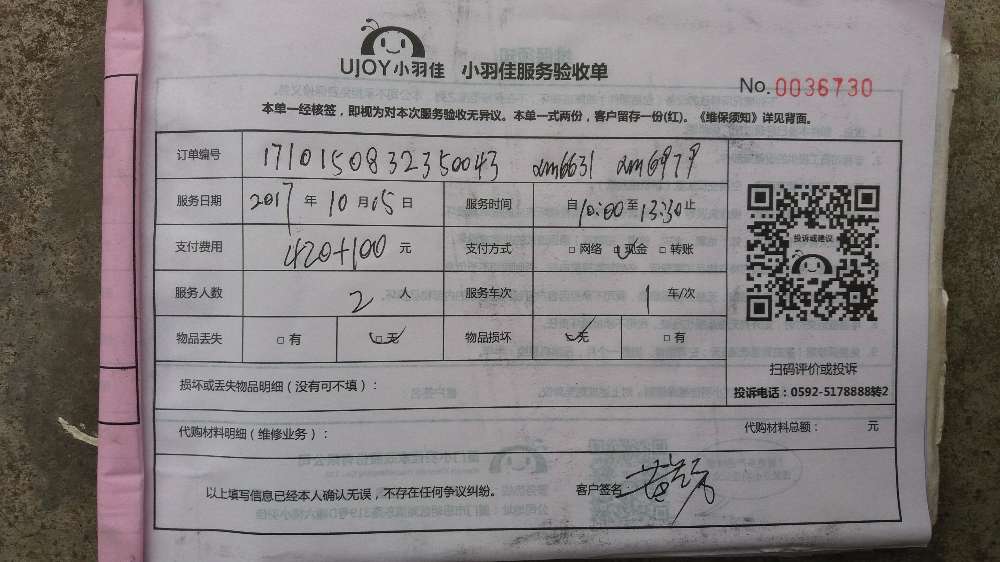 UJOY小羽佳 小羽佳服务验收单
No.0036730
本单一经核签，即视为对本次服务验收无异议。本单一式两份，客户留存一份(红)。《维保须知》详见背面。
订单编号 1710150832350043 xm6631 xm6979
服务日期 2017年10月15日 服务时间 自10:00至13:30止
支付费用 420+100元 支付方式 □网络 □现金 □转账
服务人数 2人 服务车次 1车/次
物品丢失 □有 □无 物品损坏 □无 □有
投诉或建议
扫码评价或投诉
投诉电话：0592-5178888转2
损坏或丢失物品明细（没有可不填）：
代购材料明细（维修业务）： 代购材料总额： 元
以上填写信息已经本人确认无误，不存在任何争议纠纷。 客户签名：